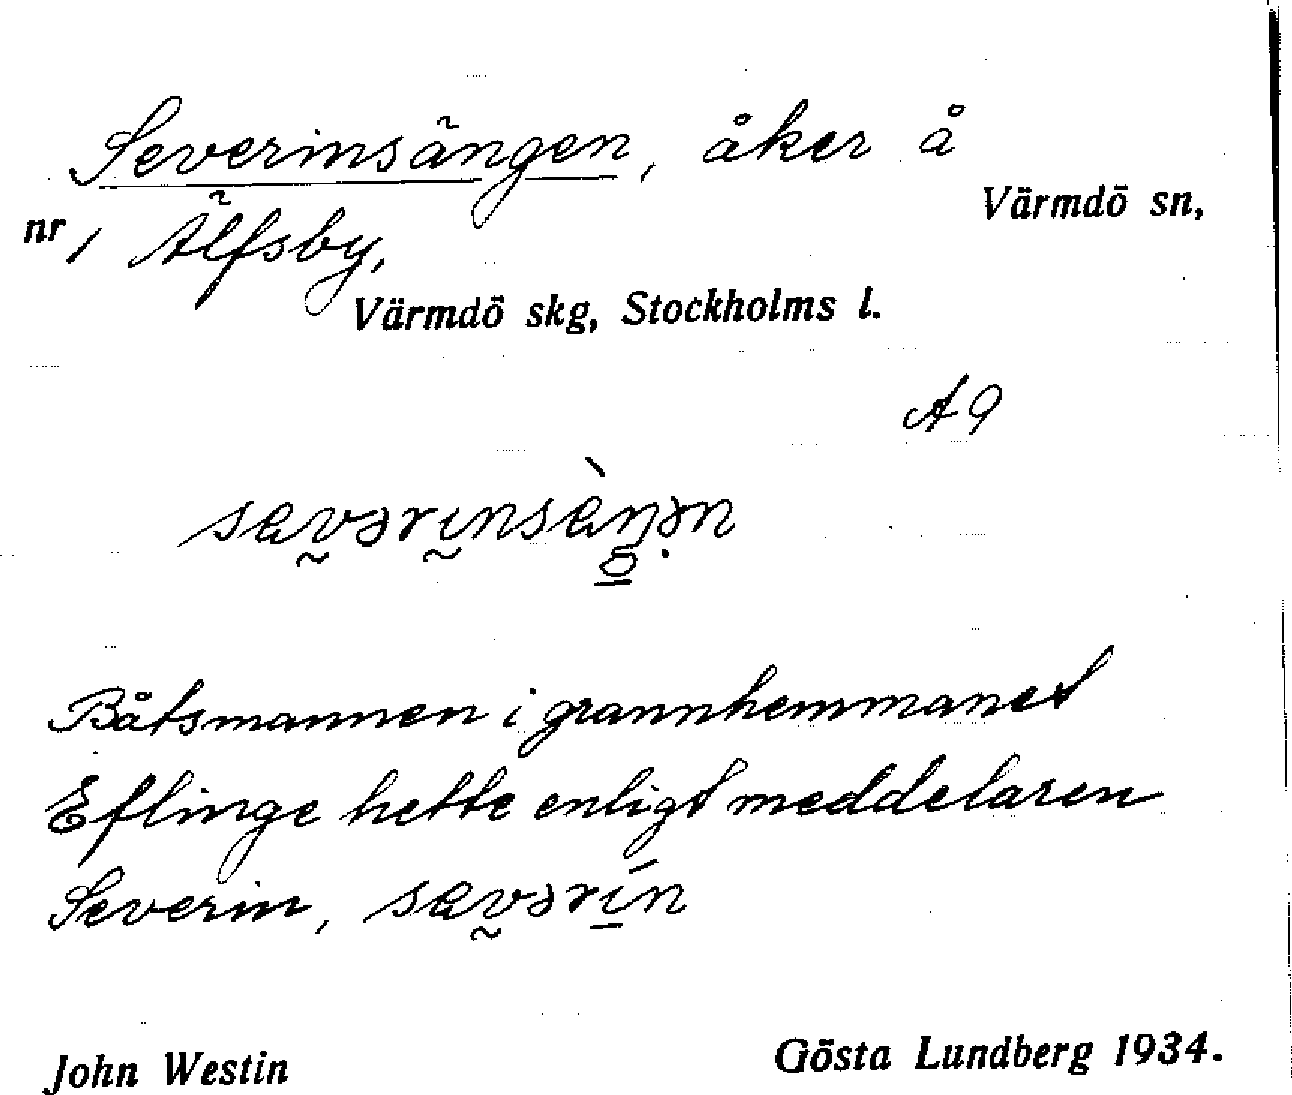 Severinsängen, åker å
Värmdö sn,
nr 1 Älfsby,
Värmdö skg, Stockholms l.
A9
Båtsmannen i grannhemmanet
Eflinge hette enligt meddelaren
Severin,
John Westin Gösta Lundberg 1934.